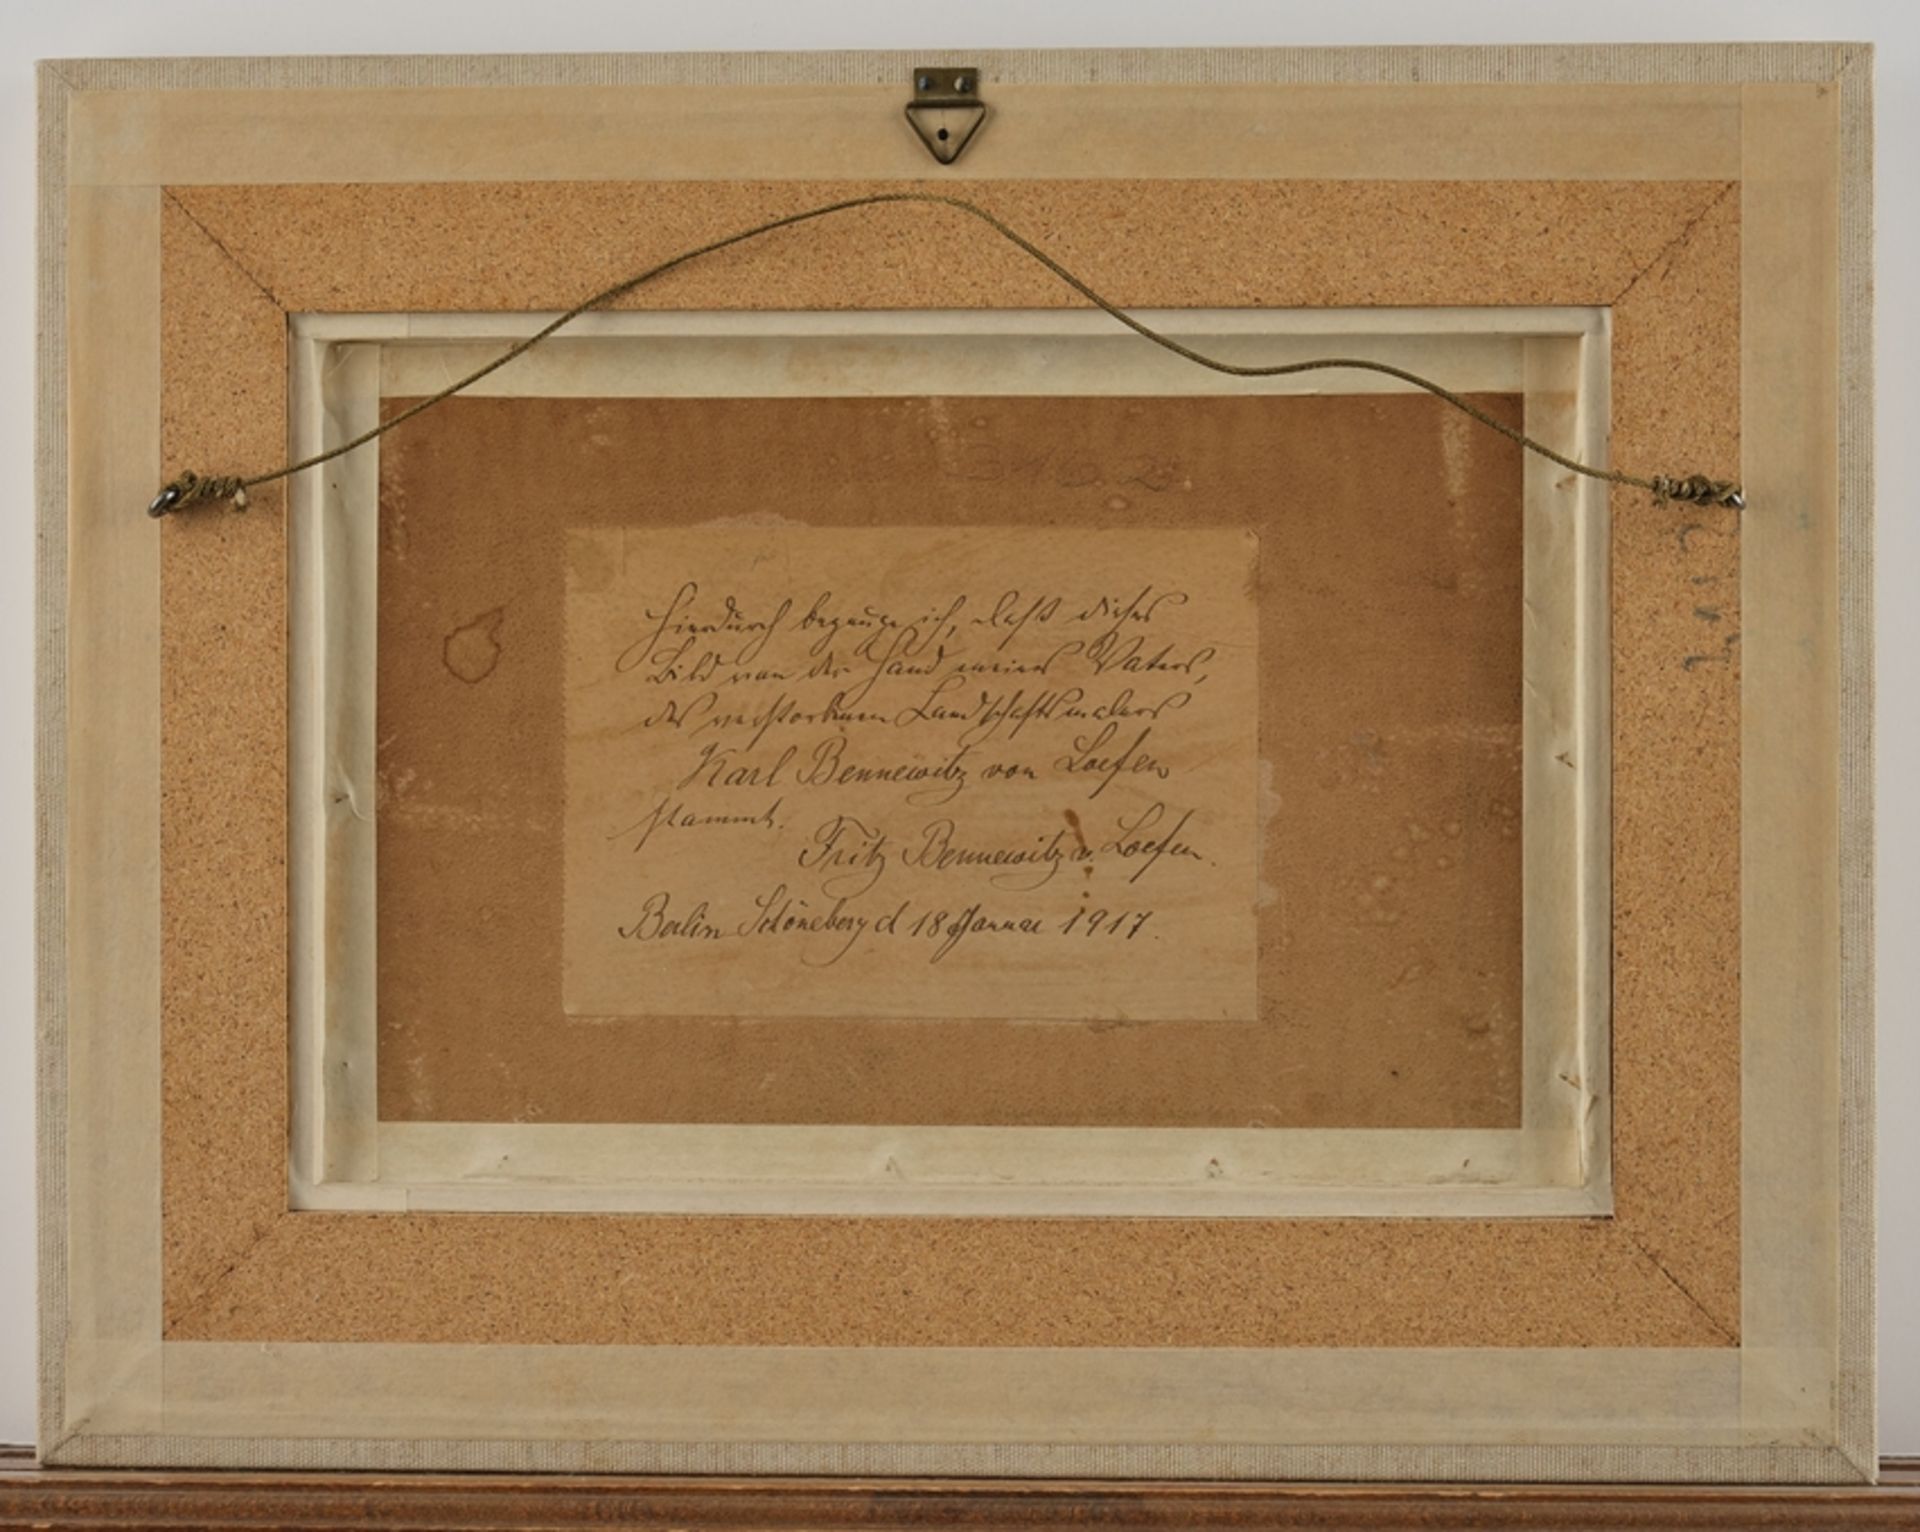 Hierdurch bezeuge ich, daß dieses
Bild von der Hand meines Vaters,
des verstorbenen Landschaftsmalers
Karl Bennewitz von Loefen
stammt.
Fritz Bennewitz v. Loefen.
Berlin Schöneberg d 18 Januar 1917.